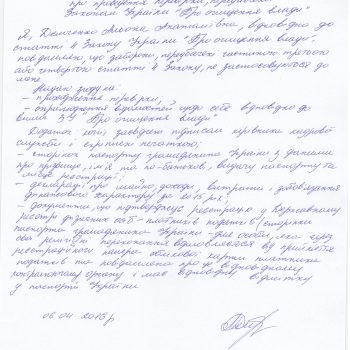 про проведення перевірки, передбаченої
Законом України "Про очищення влади"
Я, Анатоліївна, відповідно до
статті 4 Закону України "Про очищення влади",
повідомляю, що заборони, передбачені частиною третьою
або четвертою статті 1 Закону, не застосовуються до
мене
Надаю згоду на:
- проходження перевірки;
- оприлюднення відомостей щодо себе відповідно до
вимог ЗУ "Про очищення влади"
Додаток: копії, завірені підписом керівника кадрової
служби і скріплені печаткою;
- сторінок паспорту громадянина України з даними
про прізвище, ім'я та по-батькові, видачу паспорту та
місце реєстрації;
- декларації про майно, доходи, витрати і зобов'язання
фінансового характеру за 2015 рік;
- документа, що підтверджує реєстрацію у Державному
реєстрі фізичних осіб - платників податків (сторінки
паспорта громадянина України - для особи, яка через
свої релігійні переконання відмовляється від прийняття
реєстраційного номера облікової картки платника
податків та повідомила про це відповідному
контролюючому органу і має відповідну відмітку
у паспорті України
2016 р